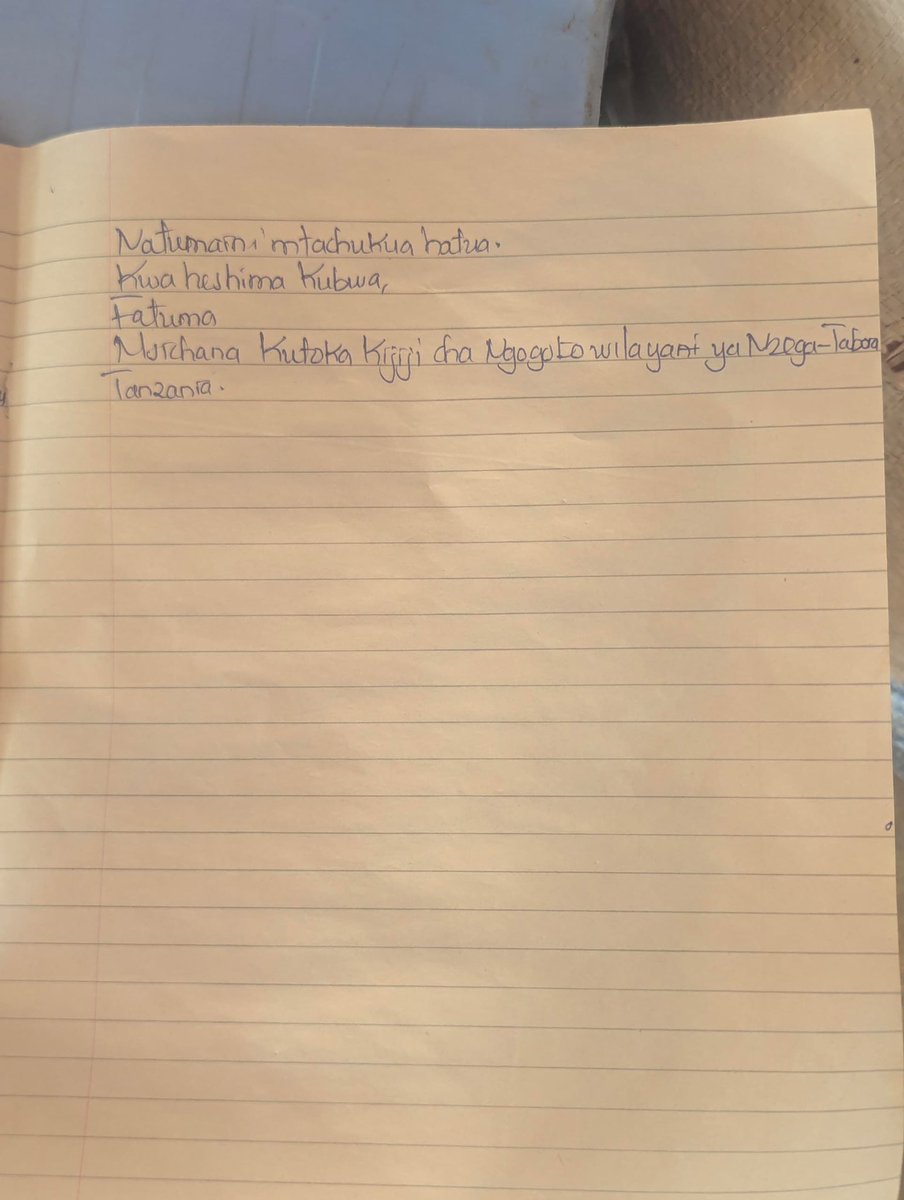 Natumaini mtachukua hatua.
Kwa heshima kubwa,
Fatuma
Msichana kutoka kijiji cha Ngogoto wilayani ya Nzega-Tabora
Tanzania.